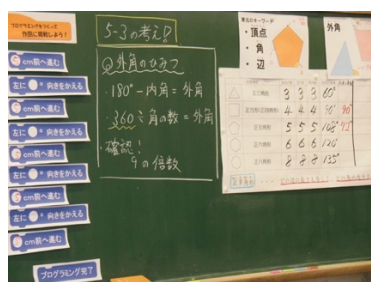 プログラミングをつくって
作図に挑戦しよう!
cm前へ進む
左に 向きをかえる
cm前へ進む
左に 向きをかえる
cm前へ進む
左に 向きをかえる
cm前へ進む
左に 向きをかえる
cm前へ進む
プログラミング完了
5-3の考え!
外角のひみつ
・180°-内角=外角
・360÷角の数=外角
確認!
9の倍数
キーワード
・頂点
・角
・辺
外角
正三角形 3 3 3 60°
4 4 4 90° 90°
正五角形 5 5 5 108° 72°
正六角形 6 6 6 120°
正八角形 8 8 8 135°
正多角形